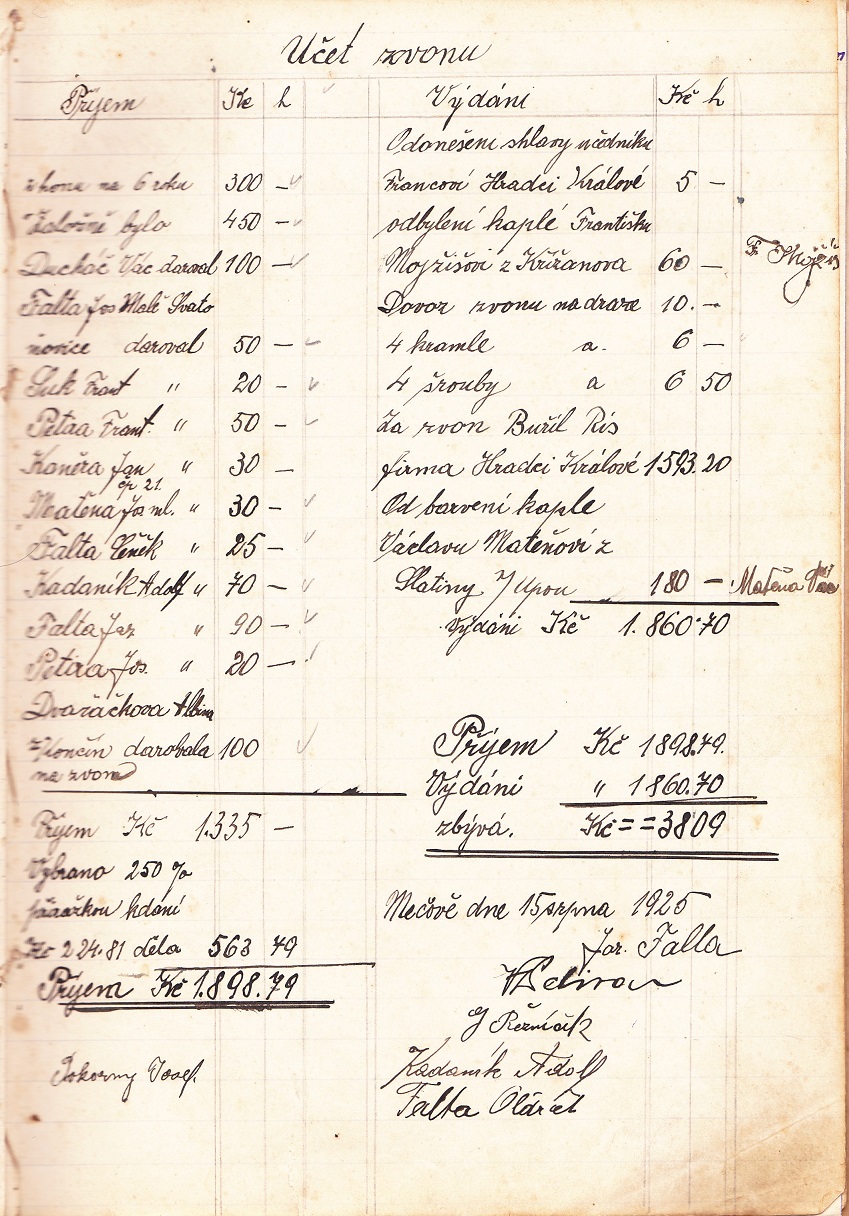 Účet zvonu
Příjem Kč h
z honu na 6 roků 300 —
Založně bylo 450 —
Ducháč Vác daroval 100 —
Falta Jos Malé Svato
novice daroval 50 —
Suk Frant " 20 —
Petira Frant. " 50 —
Kaněra Jan " 30 —
čp 21.
Matěna Jos ml. " 30 —
Falta Čeněk " 25 —
Kadaník Adolf " 70 —
Falta Jar " 90 —
Petira Jos. " 20 —
Dvořáčkova Albina
z Končin darobala 100
na zvon
Příjem Kč 1.335 —
Vybrano 250 %
přirážkou kdání
Kč 224.81 děla 563 79
Příjem Kč 1.898.79
Pokorny Josef.
Výdáni Kč h
Odonešeni shlavy učedníku
Francovi Hradci Králové 5 —
odbylení kaplé Františku
Mojžišovi z Křižanova 60 —
Dovoz zvonu nadraze 10. —
4 kramle a. 6 —
4 šrouby a 6 50
Za zvon Buřil Ris
firma Hradci Králové 1593.20
Od barvení kaple
Václavu Matěňovi z
Slatiny /Upou 180 — Matěna Vác
Výdáni Kč 1.860.70
Příjem Kč 1898.79.
Výdáni " 1860.70
zbývá. Kč = = 3809
Mečově dne 15 srpna 1925
Jar. Falta
J Řezníček
Kadaník Adolf
Falta Oldřich